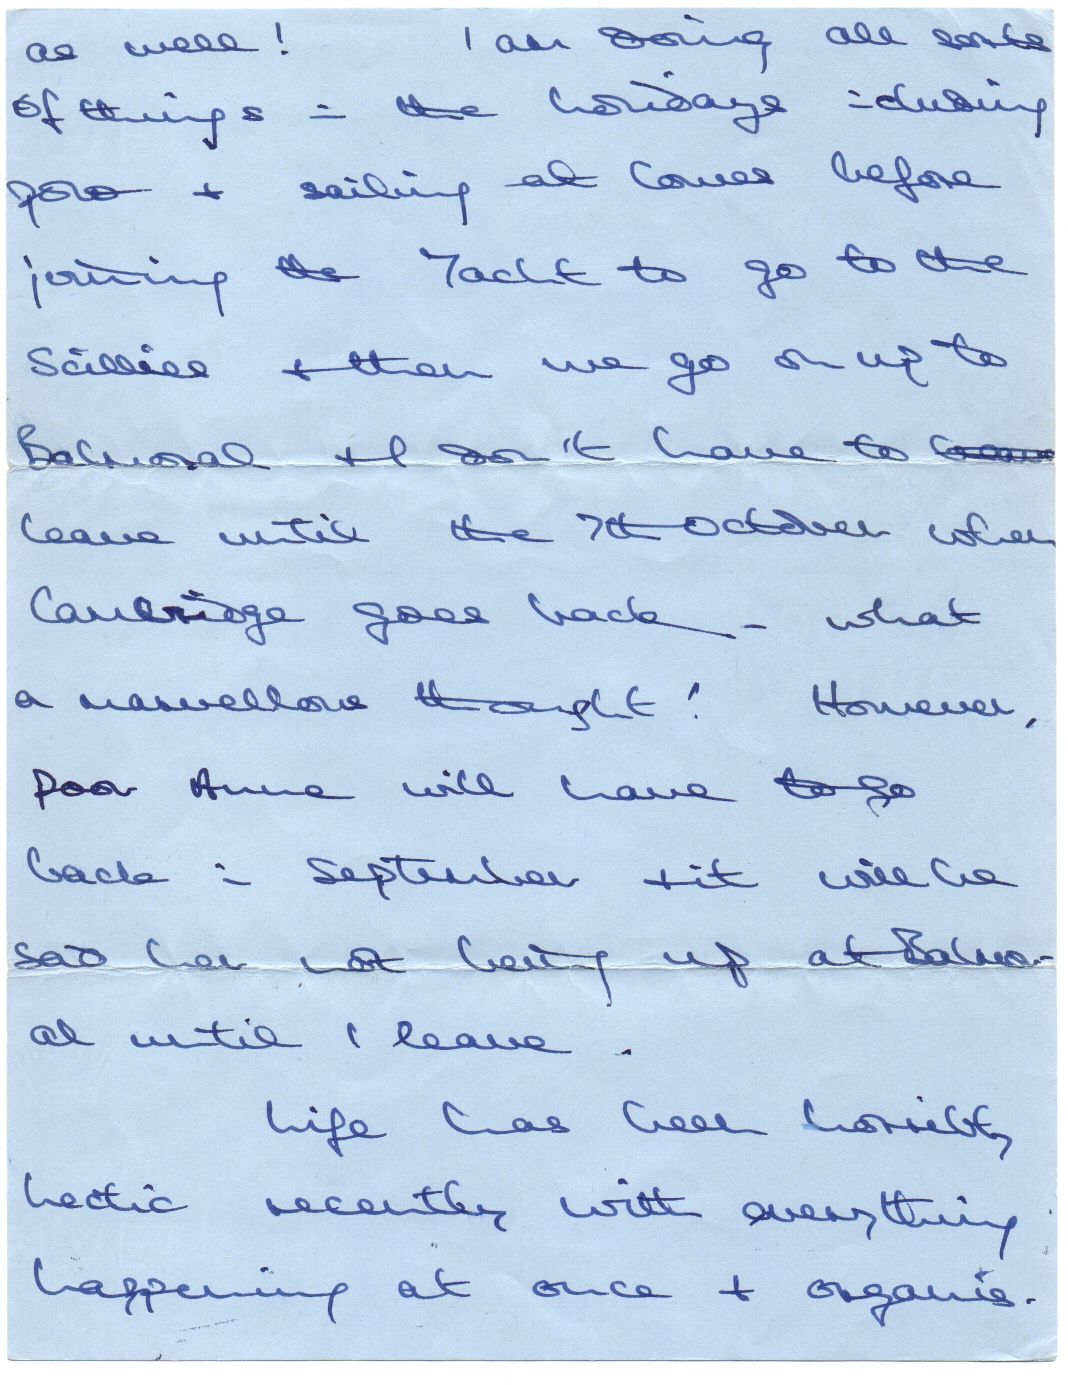 as well! I am doing all sorts
of things in the holidays including
polo + sailing at Cowes before
joining the Yacht to go to the
Scillies + then we go on up to
Balmoral + I don't have to
leave until the 7th October when
Cambridge goes back - what
a marvellous thought! However,
poor Anne will have to go
back in September + it will be
sad her not being up at Balmor-
al until I leave.
Life has been horribly
hectic recently with everything
happening at once + organis-